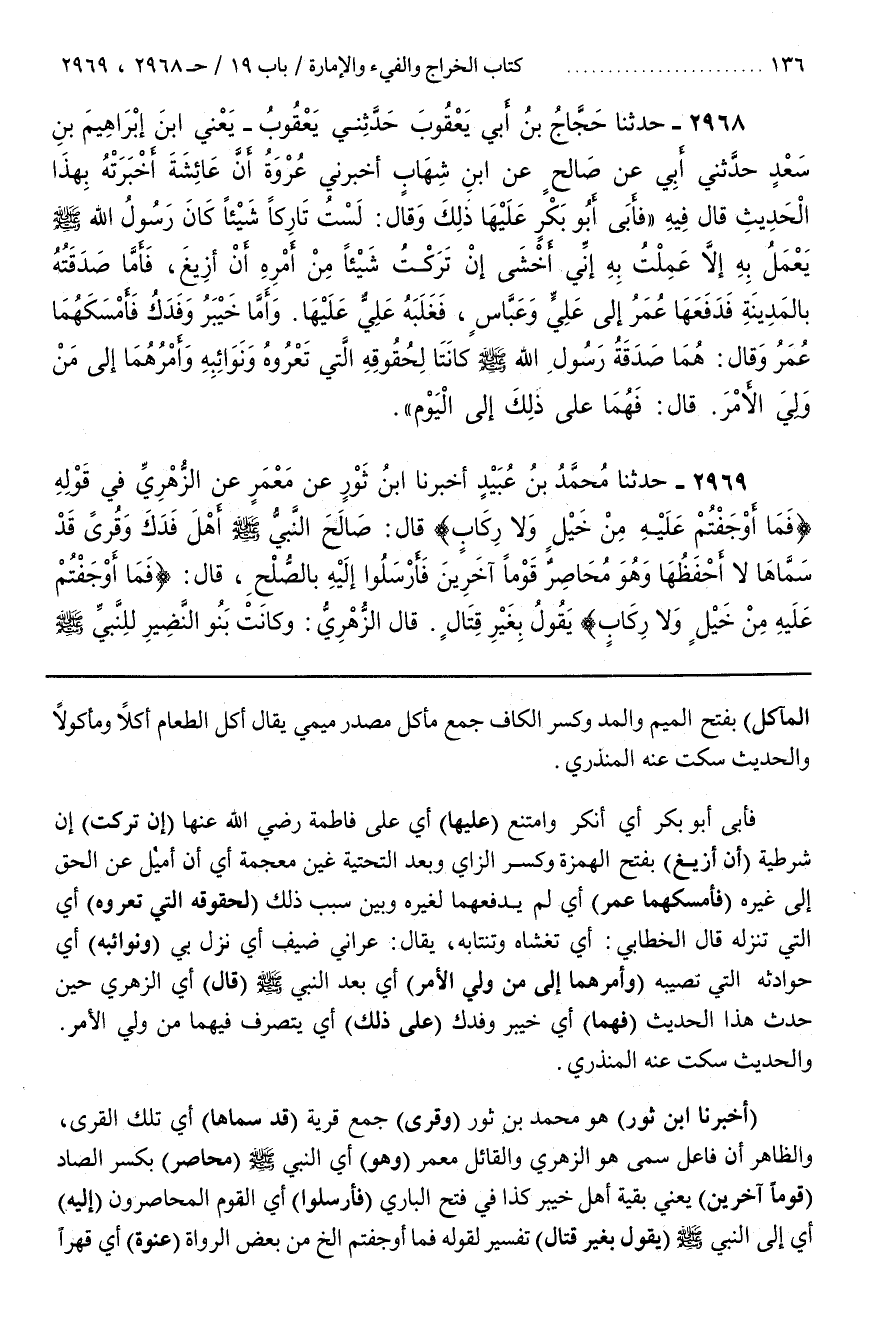 ١٣٦ ........................ كتاب الخراج والفيء والإمارة / باب ١٩ / حـ ٢٩٦٨ ، ٢٩٦٩
٢٩٦٨ ـ حدثنا حَجَّاجُ بنُ أَبي يَعْقُوبَ حَدَّثِنـي يَعْقُوبُ ـ يَعْني ابنَ إبْرَاهِيمَ بنِ
سَعْدٍ حدَّثني أَبِي عن صَالح ٍ عن ابنِ شِهَابٍ أخبرني عُرْوَةُ أَنَّ عَائِشَةَ أَخْبَرَتْهُ بِهذَا
الْحَدِيثِ قال فِيهِ «فأَبَى أَبُو بَكْرٍ عَلَيْهَا ذٰلِكَ وَقال: لَسْتُ تَارِكاً شَيْئاً كَانَ رَسُولُ الله ﷺ
يَعْمَلُ بِهِ إلاَّ عَمِلْتُ بِهِ إنِّي أَخْشَى إنْ تَرَكْـتُ شَيْئاً مِنْ أَمْرِهِ أَنْ أزِيغَ، فَأَمَّا صَدَقَتُهُ
بالمَدِينَةِ فَدَفَعَهَا عُمَرُ إلى عَلِيٍّ وَعَبَّاسٍ ، فَغَلَبَهُ عَلِيٌّ عَلَيْهَا. وَأَمَّا خَيْبَرُ وَفَدَكُ فَأَمْسَكَهُمَا
عُمَرُ وَقال: هُمَا صَدَقَةُ رَسُولِ الله ﷺ كانَتَا لِحُقُوقِهِ الَّتي تَعْرُوهُ وَنَوَائِبِهِ وَأَمْرُهُمَا إلى مَنْ
وَلِيَ الأمْرَ. قال: فَهُمَا على ذٰلِكَ إلى الْيَوْم».
٢٩٦٩ ـ حدثنا مُحمَّدُ بنُ عُبَيْدٍ أخبرنا ابنُ ثَوْرٍ عن مَعْمَرٍ عن الزُّهْرِيِّ في قَوْلِهِ
﴿فَمَا أَوْجَفْتُمْ عَلَيْـهِ مِنْ خَيْلٍ وَلا رِكَابٍ﴾ قال: صَالَحَ النَّبيُّ ﷺ أَهْلَ فَدَكَ وَقُرىً قَدْ
سَمَّاهَا لا أَحْفَظُهَا وَهُوَ مُحَاصِرٌ قَوْماً آخَرِينَ فَأَرْسَلُوا إلَيْهِ بالصُّلْحِ ، قال: ﴿فَمَا أَوْجَفْتُمْ
عَلَيهِ مِنْ خَيْلٍ وَلا رِكَابٍ﴾ يَقُولُ بِغَيْرِ قِتَالٍ . قال الزُّهْرِيُّ: وكانَتْ بَنُو النَّضِيرِ للِنَّبيِّ ﷺ
المآكل) بفتح الميم والمد وكسر الكاف جمع مأكل مصدر ميمي يقال أكل الطعام أكلًا ومأكولاً
والحديث سكت عنه المنذري.
فأبى أبو بكر أي أنكر وامتنع (عليها) أي على فاطمة رضي الله عنها (إن تركت) إن
شرطية (أن أزيـغ) بفتح الهمزة وكسـر الزاي وبعد التحتية غين معجمة أي أن أميل عن الحق
إلى غيره (فأمسكهما عمر) أي لم يـدفعهما لغيره وبين سبب ذلك (لحقوقه التي تعروه) أي
التي تنزله قال الخطابي: أي تغشاه وتنتابه، يقال: عراني ضيف أي نزل بي (ونوائبه) أي
حوادثه التي تصيبه (وأمرهما إلى من ولي الأمر) أي بعد النبي ﷺ (قال) أي الزهري حين
حدث هذا الحديث (فهما) أي خيبر وفدك (على ذلك) أي يتصرف فيهما من ولي الأمر.
والحديث سكت عنه المنذري.
(أخبرنا ابن ثور) هو محمد بن ثور (وقرى) جمع قرية (قد سماها) أي تلك القرى،
والظاهر أن فاعل سمى هو الزهري والقائل معمر (وهو) أي النبي ﷺ (محاصر) بكسر الصاد
(قوماً آخرين) يعني بقية أهل خيبر كذا في فتح الباري (فأرسلوا) أي القوم المحاصرون (إليه)
أي إلى النبي ﷺ (يقول بغير قتال) تفسير لقوله فما أوجفتم الخ من بعض الرواة (عنوة) أي قهراً